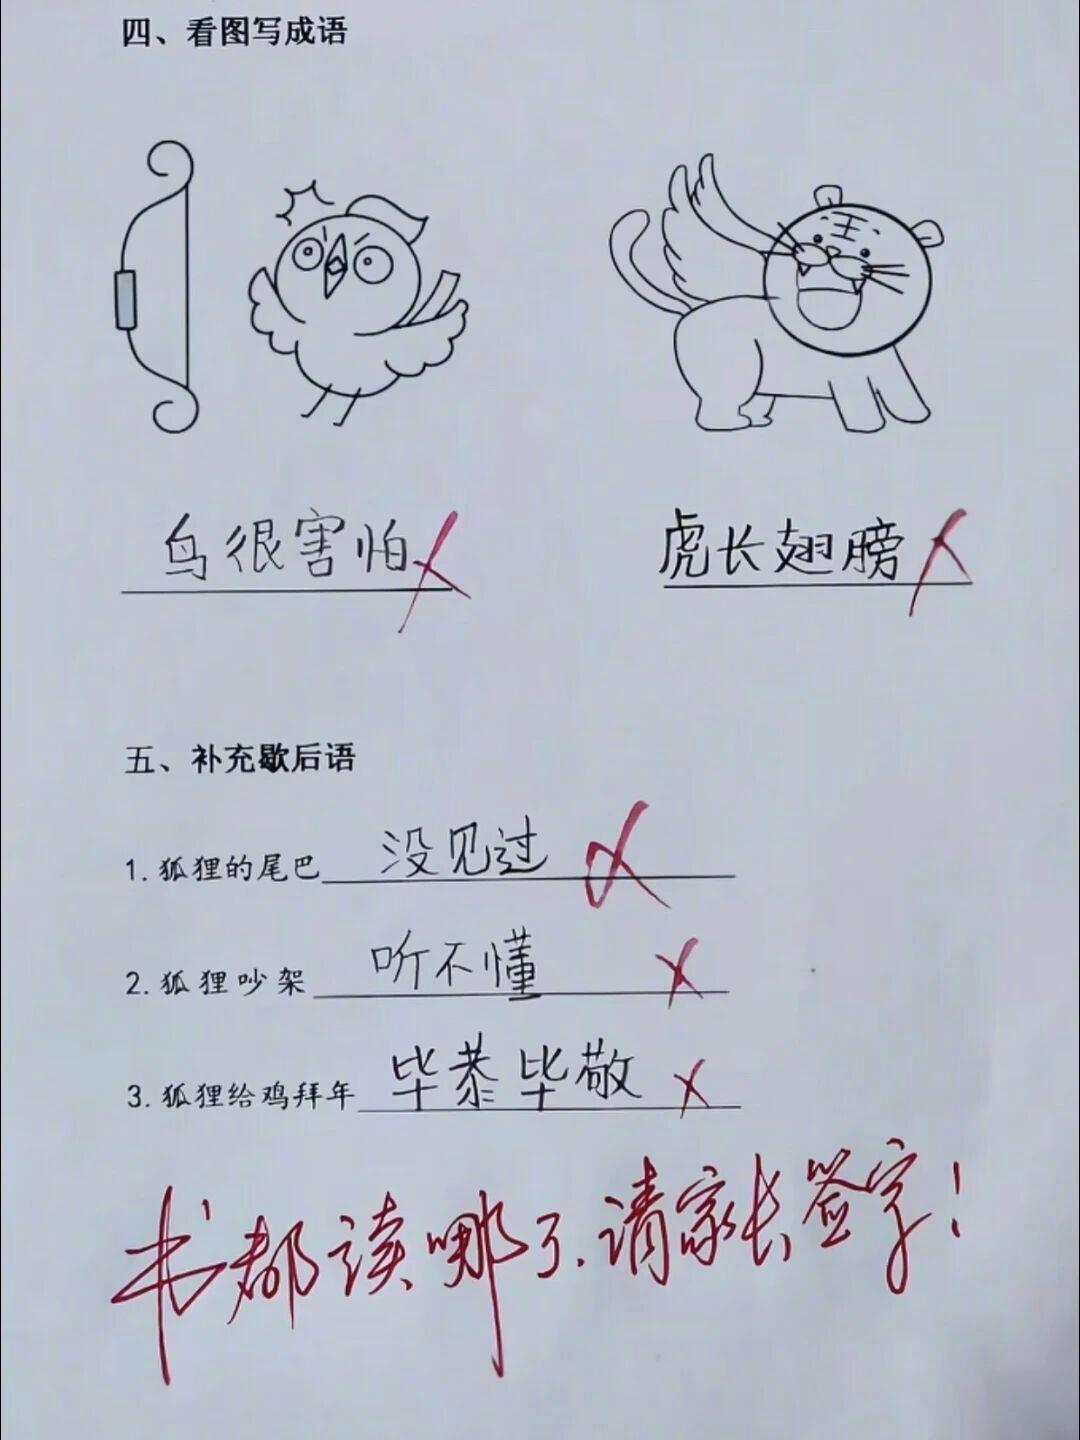 四、看图写成语
王
鸟很害怕 虎长翅膀
五、补充歇后语
1.狐狸的尾巴 没见过
2.狐狸吵架 听不懂
3.狐狸给鸡拜年 毕恭毕敬
书都读哪了.请家长签字!